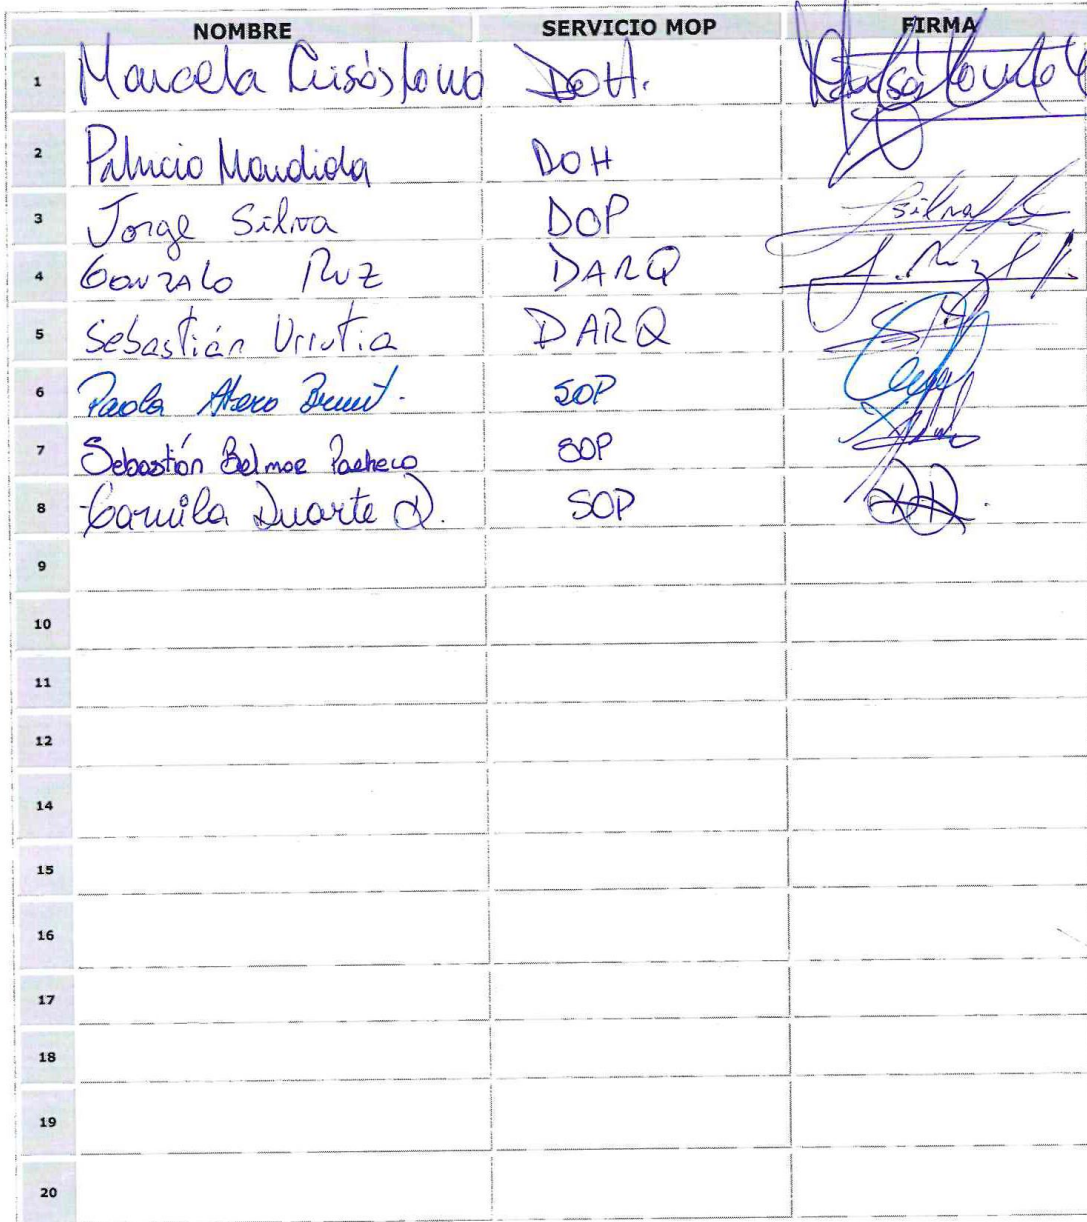 NOMBRE SERVICIO MOP FIRMA
1 Marcela Crisóstomo DOH.
2 Patricio Mandiola DOH
3 Jorge Silva DOP
4 Gonzalo Ruz DARQ
5 Sebastián Urrutia DARQ
6 Paola SOP
7 Sebastián Belmar Pacheco SOP
8 Camila Duarte D. SOP
9
10
11
12
14
15
16
17
18
19
20